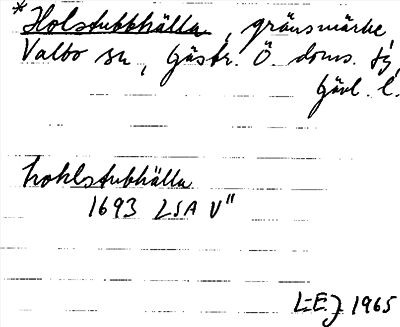 *Holstubbhälla, gränsmärke
Valbo sn, Gästr. Ö. doms. tg,
Gävl. l.
holstubbhälla
1693 LSA V"
L-E.J 1965